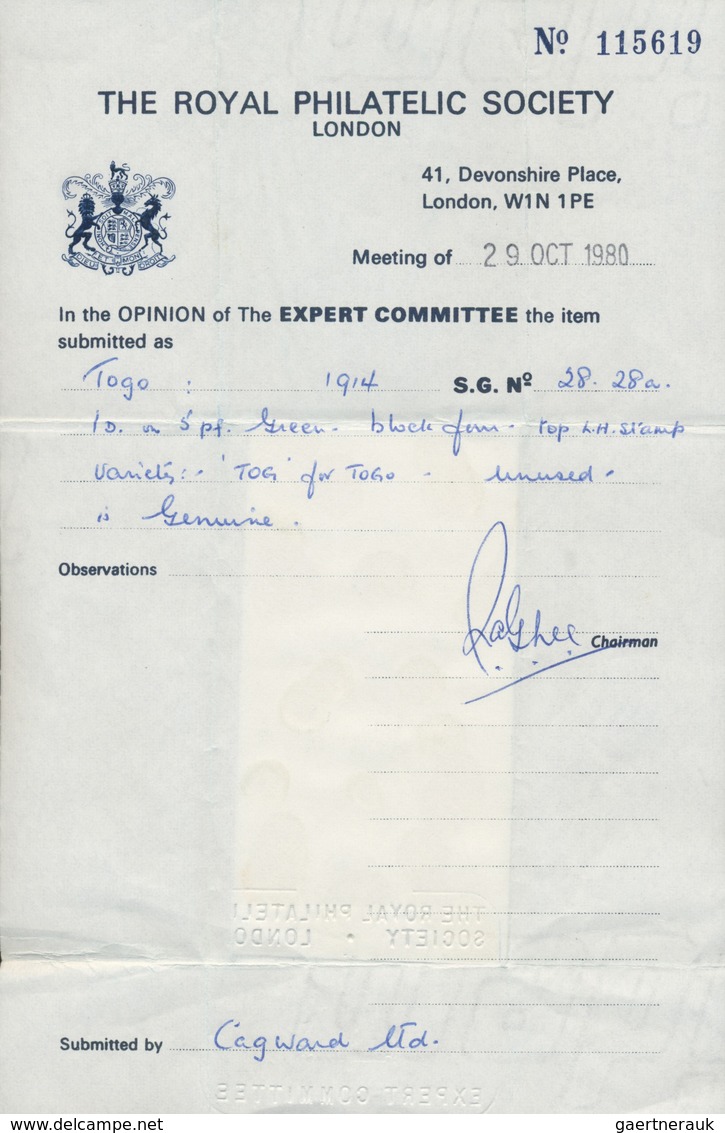 Nº 115619
THE ROYAL PHILATELIC SOCIETY
LONDON
41, Devonshire Place,
London, W1N 1PE
Meeting of 29 OCT 1980
In the OPINION of The EXPERT COMMITTEE the item
submitted as
Togo : 1914 S.G. Nº 28. 28a.
1D. on 5 pf. Green - block four - top L.H. Stamp
Variety :- 'TOG' for TOGO - Unused -
is Genuine.
Observations
Chairman
THE ROYAL PHILATELI
SOCIETY • LONDO
Submitted by Cagward Ltd.
EXPERT COMMITTEE
gaertnerauk